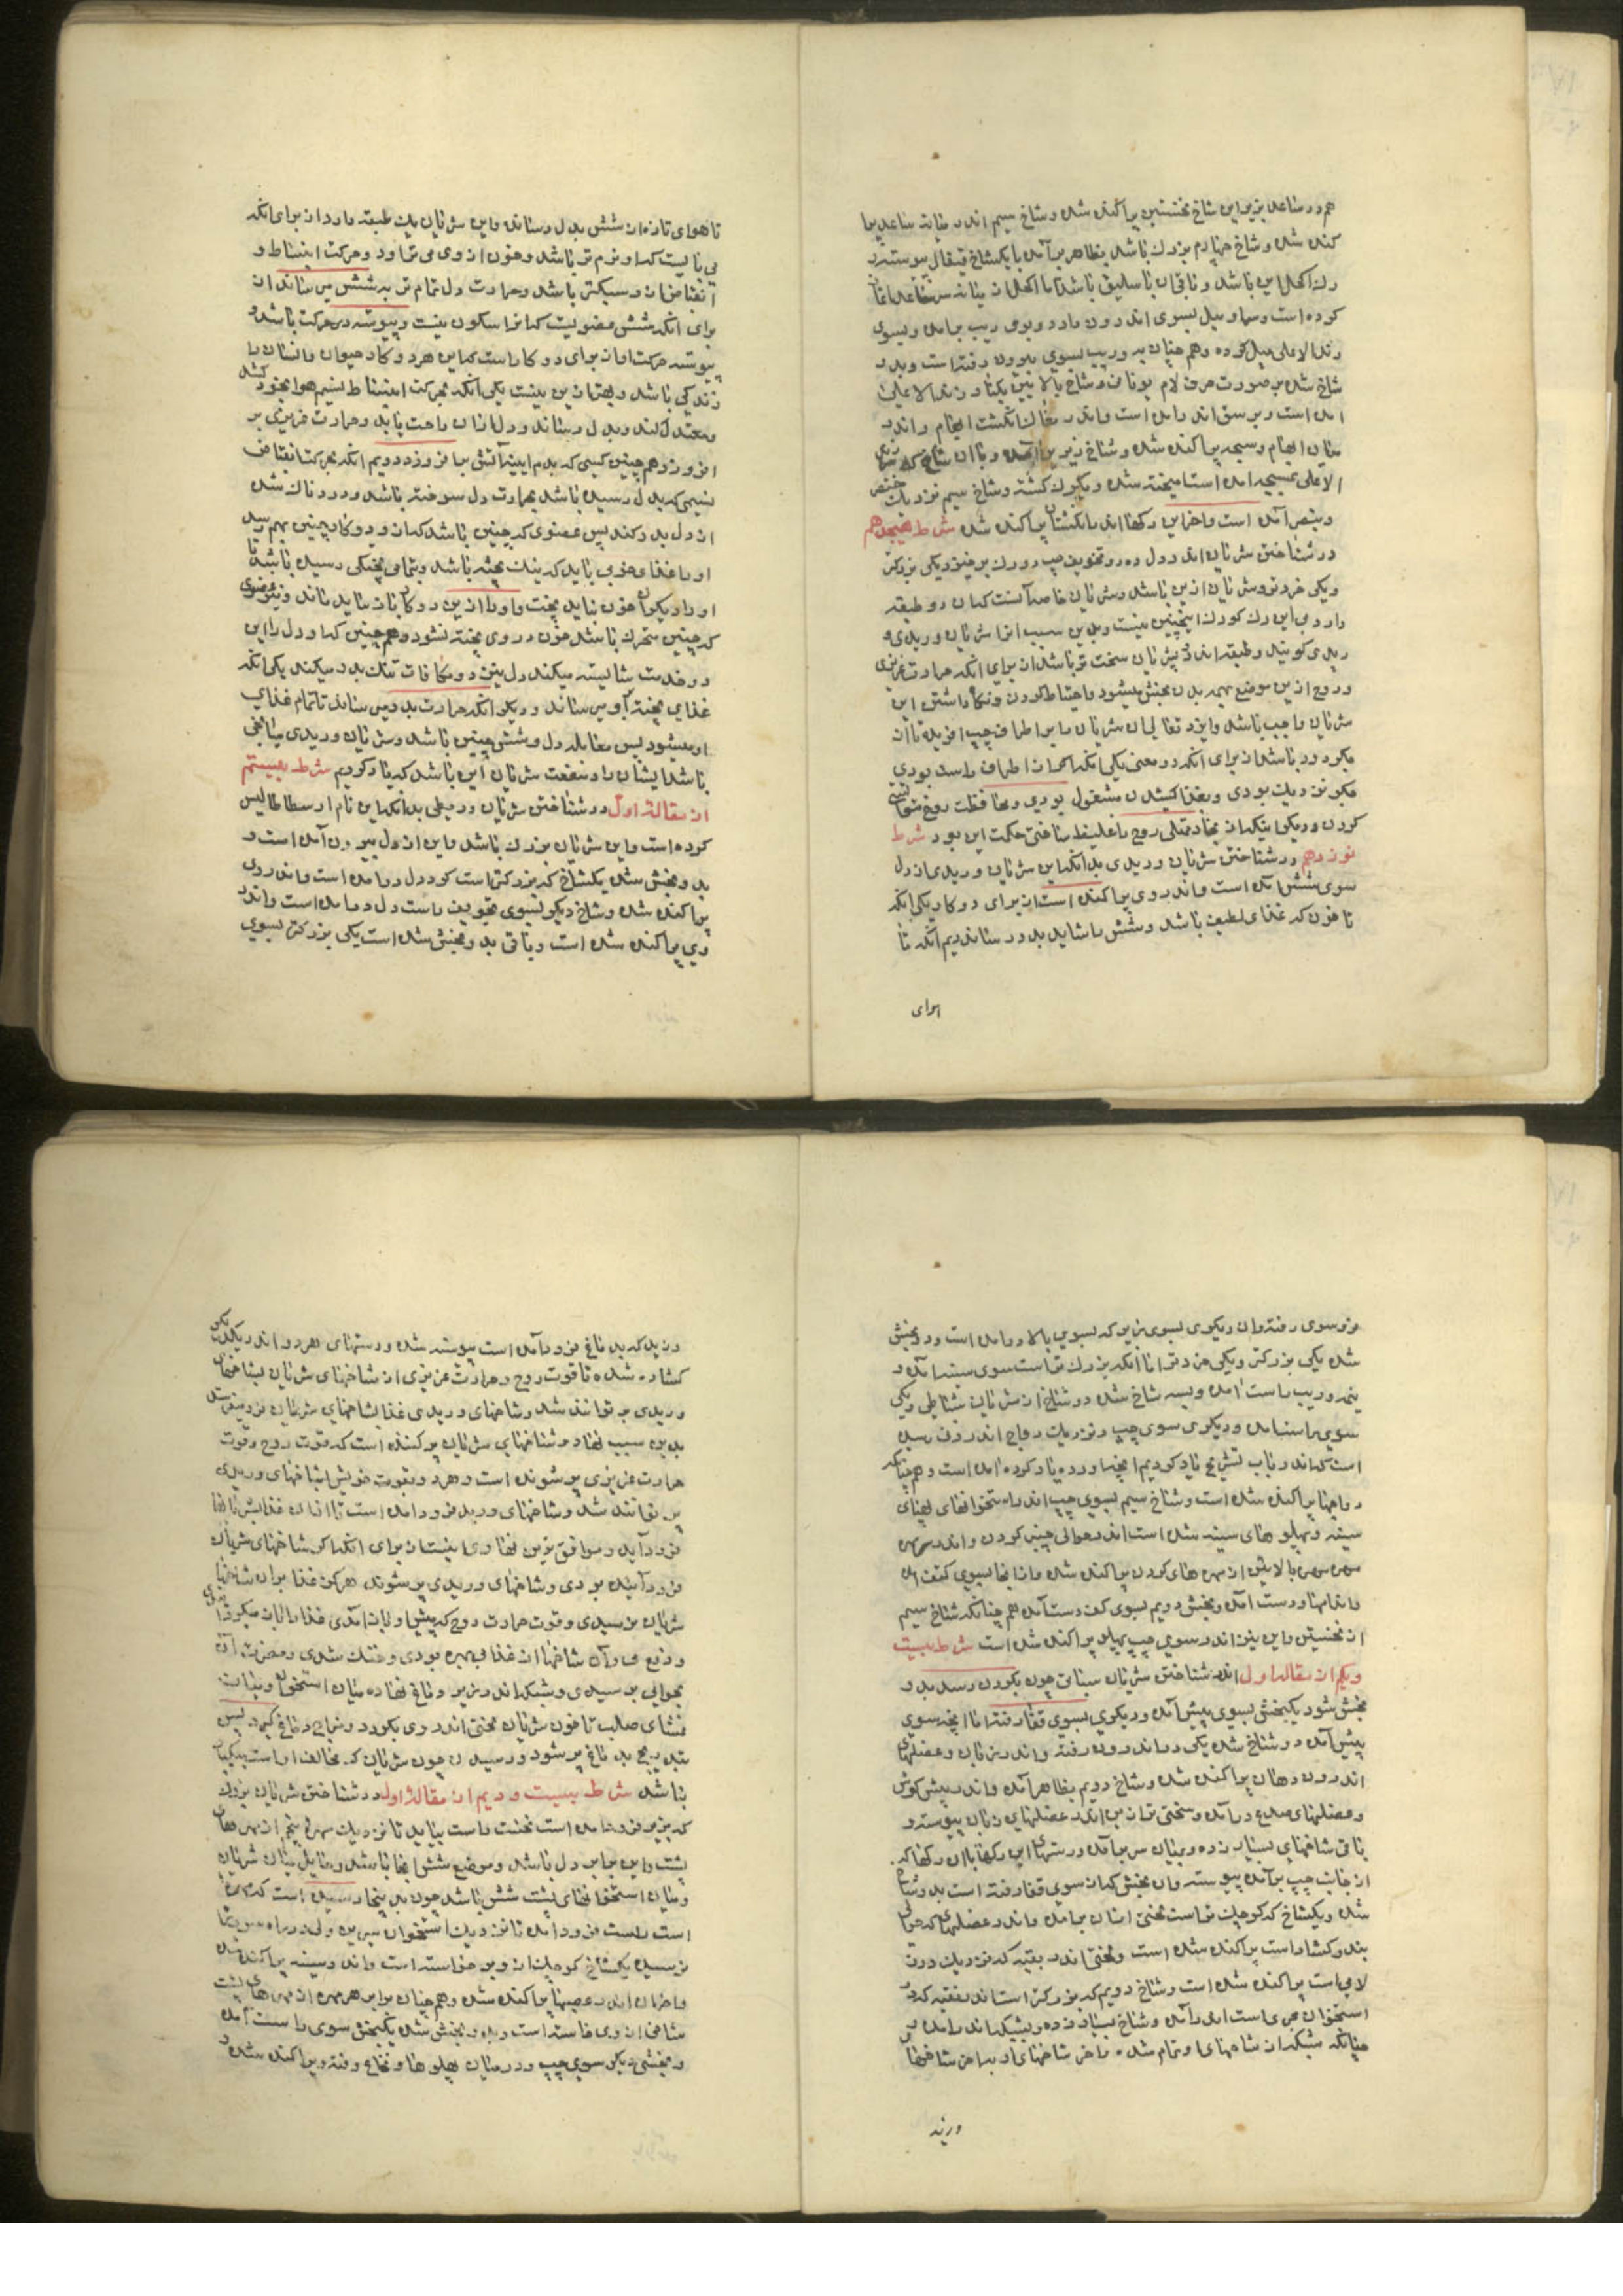 هم در ساعد زیر این شاخ نخستین پراکنده شده و شاخ سیم اندر میانه ساعد پرا
کنده شده و شاخ چهارم بزرك باشد بظاهر برآمده با یکشاخ قیفال پیوسته
رك اکحل این باشد و باقی آن باسلیق باشد اما اکحل از میانه
کرده است و میل بسوی اندرون دارد و بوی وریب برآمده و بسوی
زند الاعلی میل کرده و هم چنان به وریب بسوی بیرون رفته است و بدو
شاخ شده بر صورت حرف لام یونانی و شاخ بالایین یکتا و زند الاعلی
آمده است و بر سق اندر آمده است و اندر مغاك انکشت ابهام و اندر
میان ابهام و سبحه پراکنده شده و شاخ زیرین آمده و با آن شاخ که
الاعلی آمده است آمیخته شده و یکرك کشته و شاخ سیم نزدیك خنصر
و بنصر آمده است و آخر این رکها اندر انکشتان پراکنده شده شرط هیجدهم
در شناختن شریان اندر دل دو تجویف چپ دو رك برخیزد یکی بزرکتر
و یکی خردتر و شریان ازین باشد و شریان خاصه آنست که آن دو طبقه
دارد و این رك کورك اینچنین نیست و بدین سبب او را شریان وریدی
وریدی کویند و طبقه اندرونش زیان سخت تر باشد از برای آنکه حرارت غریزی
و روح ازین موضع بهمه بدن بخش میشود و احتیاط کردن و نکاه داشتن این
شریان واجب باشد و ایزد تعالی آن شریان ما بر اطراف چپ آفریده تا از
جکر دور باشد از برای آنکه دو معنی یکی آنکه اگر از اطراف راست بودی
جکر نزدیك بودی و بغذا کشیدن مشغول بودی و محافظت روح نتوانستی
کردن و دیکر اینکه از بخار ممتلی روح را غلیظ ساختی حکمت این بود شرط
نوزدهم در شناختن شریان وریدی بدانکه این شریان وریدی از دل
سوی شش آمده است و اندر وی پراکنده است از برای دو کار یکی آنکه
تا خون که غذای لطیف باشد و شش را شاید بدو رساند دیم آنکه تا
هوای
تا هوای تازه از شش بدل رساند و این شریان یك طبقه دارد از برای آنکه
می بایست که او نرم تر باشد و خون از وی می تراود و حرکت انبساط و
انقباض آن و سبکتر باشد و حرارت دل تمام تر به شش میرساند از
برای آنکه شش عضویست که او را سکون نیست و پیوسته در حرکت باشد و
پیوسته حرکت او از برای دو کار است که این هر دو کار حیوان و انسان را
زندکی باشد و بهتر ازین نیست یکی آنکه بحرکت انبساط نسیم هوا بخود کشد
و معتدل کند و بدل رساند و دل از آن راحت یابد و حرارت غریزی بر
افروزد و هم چنین کسی که بدم آتش را فروزد دویم آنکه بحرکت انقباض
نسیمی که بدل رسیده باشد بحرارت دل سوخته باشد و دردناك شده
از دل بدر کند پس عضوی که چنین باشد که از و دو کار چنین بهم رسد
او را غذای خوبی باید که نیك پخته باشد و بتمامی پختکی رسیده باشد تا
او را دیکر خون نباید پخت و او را ازین دو کار باز نباید ماند و نیز عضوی
که چنین متحرك باشد خون در وی پخته نشود و هم چنین که او دل را این
دو خدمت شایسته میکند دل نیز دو مکافات نیك بدو میکند یکی آنکه
غذای پخته باو میرساند و دیکر آنکه حرارت بدو میرساند تا تمام غذای
او میشود پس معامله دل و شش چنین باشد و شریان وریدی میانجی
باشد ایشان را و منفعت شریان این باشد که یاد کردیم شرط بیستم
از مقاله اول در شناختن شریان ورطی بدانکه این نام ارسطاطالیس
کرده است و این شریان بزرك باشد و این از دل بیرون آمده است و
بدو بخش شده یکشاخ که بزرکتر است کرد دل در آمده است و اندر وی
پراکنده شده و شاخ دیکر بسوی تجویف راست دل در آمده است و اندر
وی پراکنده شده است و باقی بدو بخش شده است یکی بزرکتر بسوی
فرو سوی رفته و آن دیکری بسوی زبر که بسوی بالا در آمده است و دو بخش
شده یکی بزرکتر و یکی خردتر اما آنکه بزرك تر است سوی سینه آمده و
نیمه وریب راست آمده و بسه شاخ شده دو شاخ از شریان شباطی و یکی
سوی راست آمده و دیکری سوی چپ و نزدیك وداج اندرون رسیده
است که اندر باب تشریح یاد کردیم آنچه اورده یاد کرده آمده است و هم چنانکه
وداجها پراکنده شده است و شاخ سیم بسوی چپ اندر استخوانهای پهنای
سینه و پهلوهای سینه شده است اندر حوالی چنبر کردن و اندر مهره
مهره بالایین از مهره های کردن پراکنده شده و از آنجا بسوی کتف آمده
و اندامها و دست آمده و بخش دویم بسوی کف دست آمده هم چنانکه شاخ سیم
از نخستین و این نیز اندر سوی چپ پهلو پراکنده شده است شرط بیست
و یکم از مقاله اول اندر شناختن شریان سباتی چون بکردن رسد بدو
بخش شود یکبخش بسوی پیش آمده و دیکری بسوی قفا رفته اما آنچه سوی
پیش آمده دو شاخ شده یکی در اندرون رفته و اندر زبان و عضلهای
اندرون دهان پراکنده شده و شاخ دویم بظاهر آمده و اندر پیش کوش
و عضلهای صدغ در آمده و سختی تر از من اندر عضلهای زبان پیوسته و
باقی شاخهای بسیار زده و بمیان سر برآمده و رستهای این رکها با آن رکها که
از جانب چپ برآمده پیوسته و آن بخش که آن سوی قفا رفته است بدو شاخ
شده و یکشاخ که کوچك تر است بختی از آن برآمده و اندر عضلهای که حوالی
بند و کشا راست پراکنده شده است و لختی اندر بقیه که نزدیك درز
لامی است پراکنده شده است و شاخ دویم که بزرکتر است اندر ثقبه که در
استخوان حجری است اندر آمده و شاخ بسیار زده و بشبکه اندر آمده و
چنانکه شبکه از شاخهای او تمام شده و آخر شاخهای او بآخر شاخهای
ورید
ورید که بدماغ فرود آمده است پیوسته شده و رستهای هر دو اندر یکدیکر
کشاده شده تا قوت روح و حرارت غریزی از شاخهای شریان بشاخهای
وریدی بر توانند شد و شاخهای وریدی غذا بشاخهای شریان فرو میفرستد
بدین سبب نهاد شاخهای شریان برکننده است که قوت روح و قوت
حرارت غریزی بر شونده است و هر دو بقوت خویش بشاخهای وریدی
بر توانند شد و شاخهای ورید فرود آمده است تا آسان غذایش با آنها
فرود آید و موافق ترین نهادی اینست از برای آنکه اکر شاخهای شریان
فرود آینده بودی و شاخهای وریدی بر شونده هر کز غذا بر آن شاخها
شریان نرسیدی و قوت حرارت روح که پیش او باز آمدی غذا را باز میکردانیدی
و دفع می و آن شاخها از غذا بی بهره بودی و خشك شدی و مضرت آن
بحوالی برسیدی و شبکه اندر زیر دماغ نهاده میان استخوان و میان
غشای صلب تا خون شریان لختی اندر وی بکردد و مزاج دماغ کیرد پس
بتدریج بدماغ بر شود و رسیدن چون شریان که مخالف او است بیکبار
نباشد شرط بیست و دیم از مقاله اول در شناختن شریان بزرك
که بزیر فرود آمده است نخست راست بیاید تا نزدیك مهره پنجم از مهرهای
پشت و این برابر دل باشد و موضع شش آنجا باشد و حایل میان شریان
و میان استخوانهای پشت شش باشد چون بدینجا رسیده است که مهره
است راست فرود آمده تا نزدیك استخوان سرین و لیکن در راه چون بنا
رسیده یکشاخ کوچك از وی برخواسته است و اندر سینه پراکنده شده
و آخر آن اندر قصبها پراکنده شده و هم چنان برابر هر مهره از مهرهای پشت
شاخی از وی خاسته است و بدو بخش شده یکبخش سوی راست آمده
و بخشی دیکر سوی چپ و در میان پهلوها و نخاع رفته و پراکنده شده و